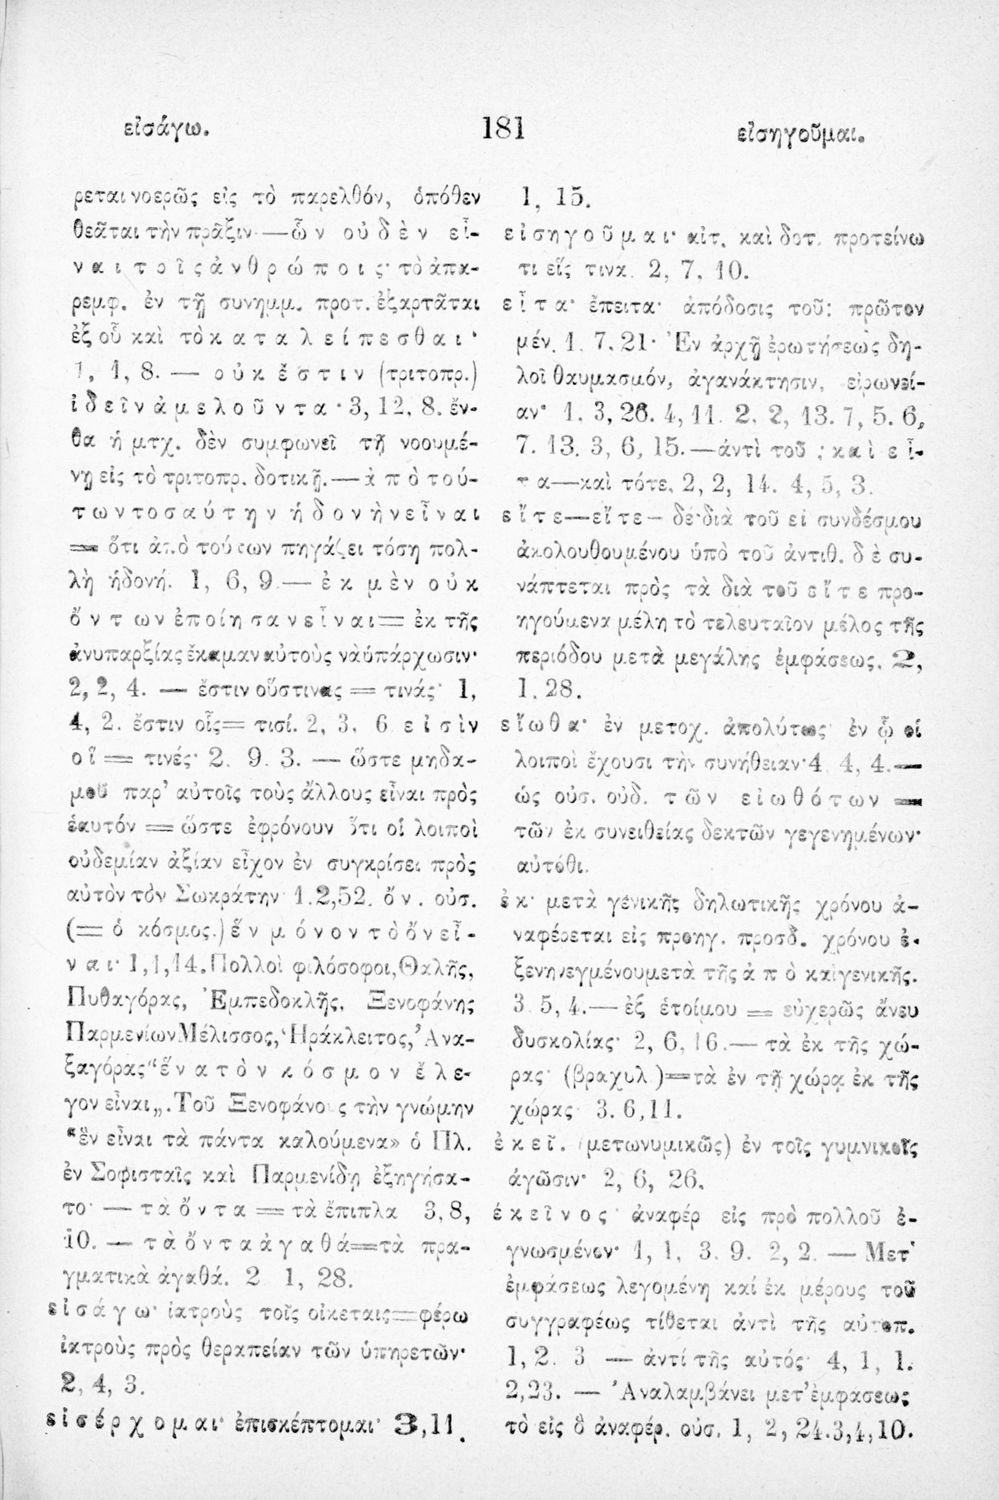 εἰσάγω.
181
εἰσηγοῦμαι.
ρεται νοερῶς εἰς τὸ παρελθόν, ὁπόθεν
θεᾶται τὴν πρᾶξιν — ὧν οὐδὲν εἶ-
ναι τοῖς ἀνθρώποις· τὸ ἀπα-
ρεμφ. ἐν τῇ συνημμ. προτ. ἐξαρτᾶται
ἐξ οὗ καὶ τὸ καταλείπεσθαι·
1, 1, 8. — οὐκ ἔστιν (τριτοπρ.)
ἰδεῖν ἀμελοῦντα· 3, 12, 8. ἔν-
θα ἡ μτχ. δὲν συμφωνεῖ τῇ νοουμέ-
νῃ εἰς τὸ τριτοπρ. δοτικῇ. — ἀπὸ τού-
των τοσαύτην ἡδονὴν εἶναι
= ὅτι ἀπὸ τούτων πηγάζει τόση πολ-
λὴ ἡδονή. 1, 6, 9 — ἐκ μὲν οὐκ
ὄντων ἐποίησαν εἶναι = ἐκ τῆς
ἀνυπαρξίας ἔκαμαν αὐτοὺς νὰ ὑπάρχωσιν·
2, 2, 4. — ἔστιν οὕστινας = τινάς· 1,
4, 2. ἔστιν οἷς = τισί. 2, 3, 6 εἰσὶν
οἳ = τινές· 2. 9. 3. — ὥστε μηδα-
μοῦ παρ' αὐτοῖς τοὺς ἄλλους εἶναι πρὸς
ἑαυτόν = ὥστε ἐφρόνουν ὅτι οἱ λοιποὶ
οὐδεμίαν ἀξίαν εἶχον ἐν συγκρίσει πρὸς
αὐτὸν τὸν Σωκράτην 1.2,52. ὄν. οὐσ.
(= ὁ κόσμος.) ἓν μόνον τὸ ὂν εἶ-
ναι· 1,1,14. Πολλοὶ φιλόσοφοι, Θαλῆς,
Πυθαγόρας, Ἐμπεδοκλῆς, Ξενοφάνης
Παρμενίων Μέλισσος, Ἡράκλειτος, Ἀνα-
ξαγόρας "ἕνα τὸν κόσμον ἔλε-
γον εἶναι„. Τοῦ Ξενοφάνους τὴν γνώμην
“ἓν εἶναι τὰ πάντα καλούμενα» ὁ Πλ.
ἐν Σοφισταῖς καὶ Παρμενίδῃ ἐξηγήσα-
το· — τὰ ὄντα = τὰ ἔπιπλα 3,8,
10. — τὰ ὄντα ἀγαθά = τὰ πρα-
γματικὰ ἀγαθά. 2 1, 28.
εἰσάγω· ἰατροὺς τοῖς οἰκεταις = φέρω
ἰατροὺς πρὸς θεραπείαν τῶν ὑπηρετῶν·
2, 4, 3.
εἰσέρχομαι· ἐπισκέπτομαι· 3,11.
1, 15.
εἰσηγοῦμαι· αἰτ. καὶ δοτ. προτείνω
τι εἴς τινα 2, 7, 10.
εἶτα· ἔπειτα· ἀπόδοσις τοῦ: πρῶτον
μέν. 1. 7. 21· Ἐν ἀρχῇ ἐρωτήσεως δη-
λοῖ θαυμασμόν, ἀγανάκτησιν, εἰρωνεί-
αν· 1. 3, 26. 4, 11. 2, 2, 13. 7, 5. 6,
7. 13. 3, 6, 15. — ἀντὶ τοῦ: καὶ εἶ-
τα — καὶ τότε, 2, 2, 14. 4, 5, 3.
εἴτε — εἴτε — δὲ· διὰ τοῦ εἰ συνδέσμου
ἀκολουθουμένου ὑπὸ τοῦ ἀντιθ. δὲ συ-
νάπτεται πρὸς τὰ διὰ τοῦ εἴτε προ-
ηγούμενα μέλη τὸ τελευταῖον μέλος τῆς
περιόδου μετὰ μεγάλης ἐμφάσεως. 2,
1. 28.
εἴωθα· ἐν μετοχ. ἀπολύτως· ἐν ᾧ οἱ
λοιποὶ ἔχουσι τὴν συνήθειαν· 4 4, 4. —
ὡς οὐσ. οὐδ. τῶν εἰωθότων =
τῶν ἐκ συνειθείας δεκτῶν γεγενημένων·
αὐτόθι.
ἐκ· μετὰ γενικῆς δηλωτικῆς χρόνου ἀ-
ναφέρεται εἰς προηγ. προσδ. χρόνου ἐ-
ξενηνεγμένου μετὰ τῆς ἀπὸ καὶ γενικῆς.
3. 5, 4. — ἐξ ἑτοίμου = εὐχερῶς ἄνευ
δυσκολίας· 2, 6, 16. — τὰ ἐκ τῆς χώ-
ρας· (βραχυλ) = τὰ ἐν τῇ χώρᾳ ἐκ τῆς
χώρας 3. 6,11.
ἐκεῖ. (μετωνυμικῶς) ἐν τοῖς γυμνικοῖς
ἀγῶσιν· 2, 6, 26.
ἐκεῖνος· ἀναφέρ εἰς πρὸ πολλοῦ ἐ-
γνωσμένον· 1, 1, 3. 9. 2, 2. — Μετ'
ἐμφάσεως λεγομένη καὶ ἐκ μέρους τοῦ
συγγραφέως τίθεται ἀντὶ τῆς αὐτοπ.
1, 2. 3 — ἀντί τῆς αὐτός· 4, 1, 1.
2,23. — Ἀναλαμβάνει μετ' ἐμφάσεως
τὸ εἰς ὃ ἀναφέρ. οὐσ. 1, 2, 24. 3,4,10.